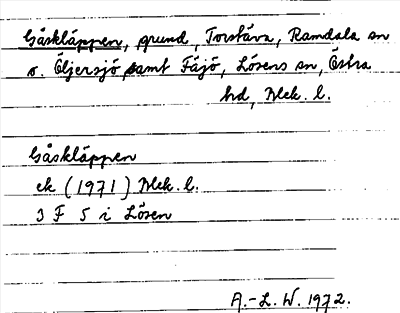 Gåskläppen, grund, Torstäva, Ramdala sn
o. Öljersjö samt Fäjö, Lösens sn, Östra
hd, Blek. l.
Gåskläppen
ek (1971) Blek. l.
3 F 5 i Lösen
A.-L. W. 1972.